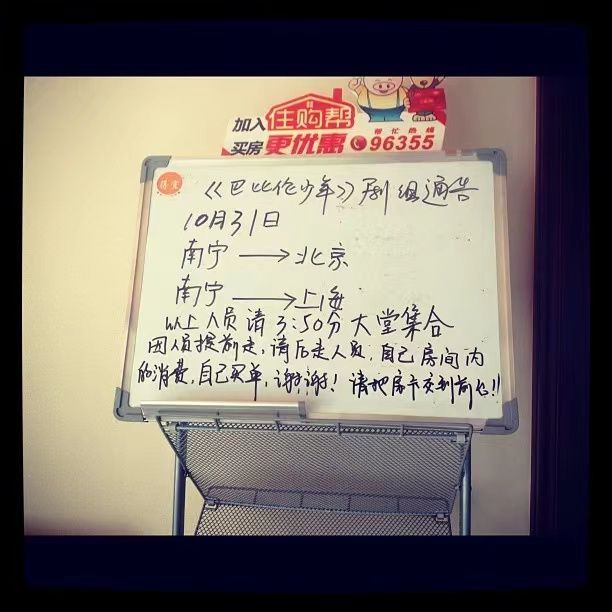 加入住购帮
买房更优惠
帮忙热线
96355
得实
《巴比伦少年》剧组通告
10月31日
南宁→北京
南宁→上海
以上人员请3:50分大堂集合
因人员提前走,请后走人员,自己房间内
的消费,自己买单,谢谢!请把房卡交到前台!!